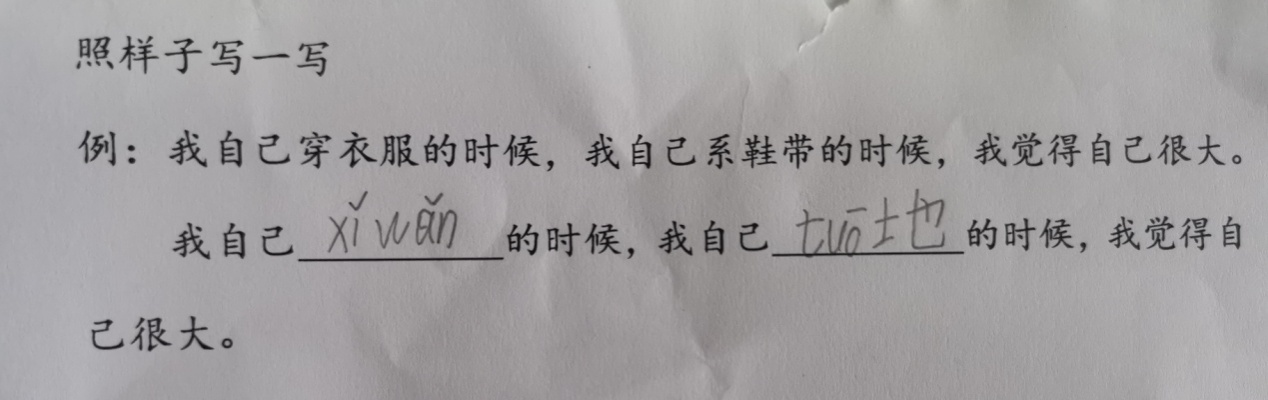 照样子写一写
例：我自己穿衣服的时候，我自己系鞋带的时候，我觉得自己很大。
我自己xǐ wǎn的时候，我自己tuō土也的时候，我觉得自
己很大。